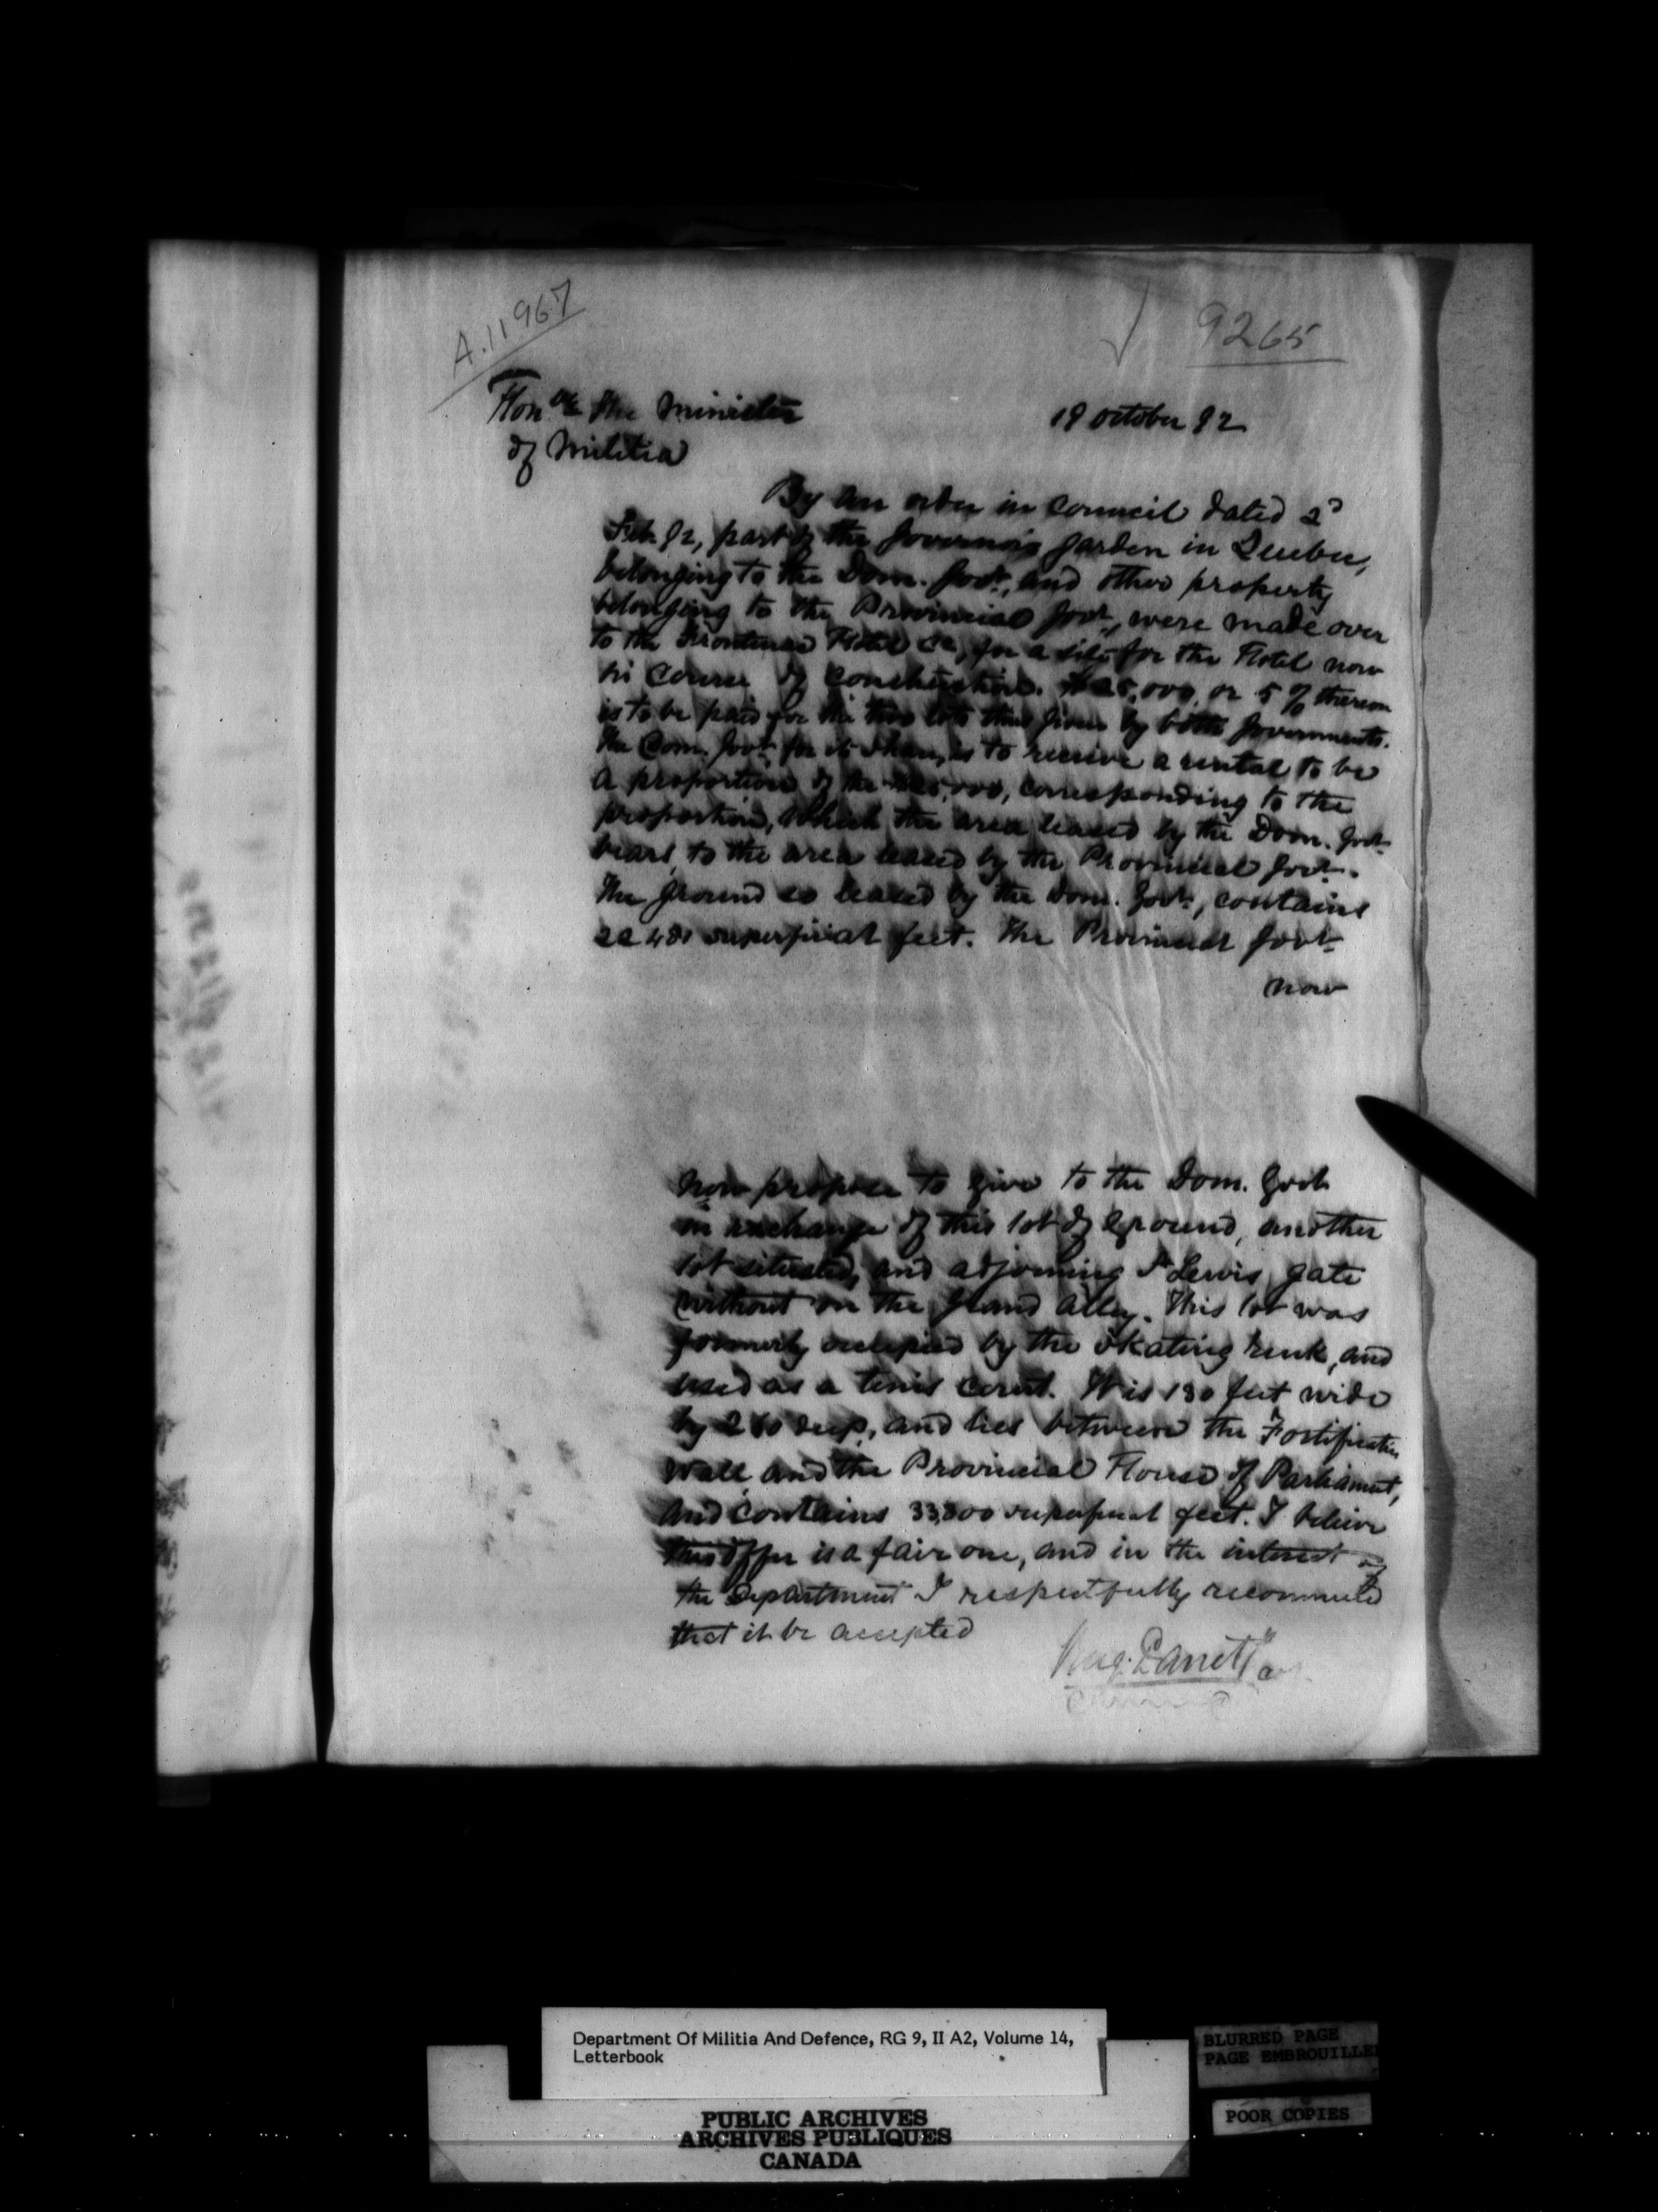 A.11967
9265
Honble The Minister
of Militia
19 October 92
By an order in Council dated 2d
Feb 92, part of the Governor's garden in Quebec,
belonging to the Dom. Govt, and other property
belonging to the Provincial Govt, were made over
to the Frontenac Hotel Co, for a site for the Hotel now
in course of construction. $25,000, or 5% thereon
is to be paid for the two lots thus given by both Governments.
The Dom. Govt for its share, is to receive a rental to be
a proportion of the $25,000, corresponding to the
proportion, which the area leased by the Dom. Govt
bears to the area leased by the Provincial Govt.
The ground so leased by the Dom. Govt, contains
superficial feet. The Provincial Govt
now
now propose to give to the Dom. Govt
in exchange of this lot of ground, another
lot situated, and adjoining St Lewis gate
without on the Grand Alley. This lot was
formerly occupied by the Skating rink, and
used as a tenis court. It is 130 feet wide
by 260 deep, and lies between the Fortification
Wall and the Provincial House of Parliament,
and contains 33,800 superficial feet. I believe
this offer is a fair one, and in the interest of
the Department I respectfully recommend
that it be accepted
Panet
Department Of Militia And Defence, RG 9, II A2, Volume 14,
Letterbook
BLURRED PAGE
PAGE EMBROUILLEE
POOR COPIES
PUBLIC ARCHIVES
ARCHIVES PUBLIQUES
CANADA